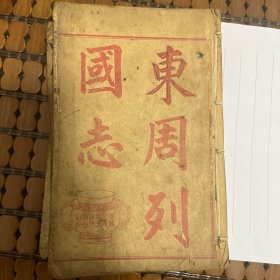 東周列
國志